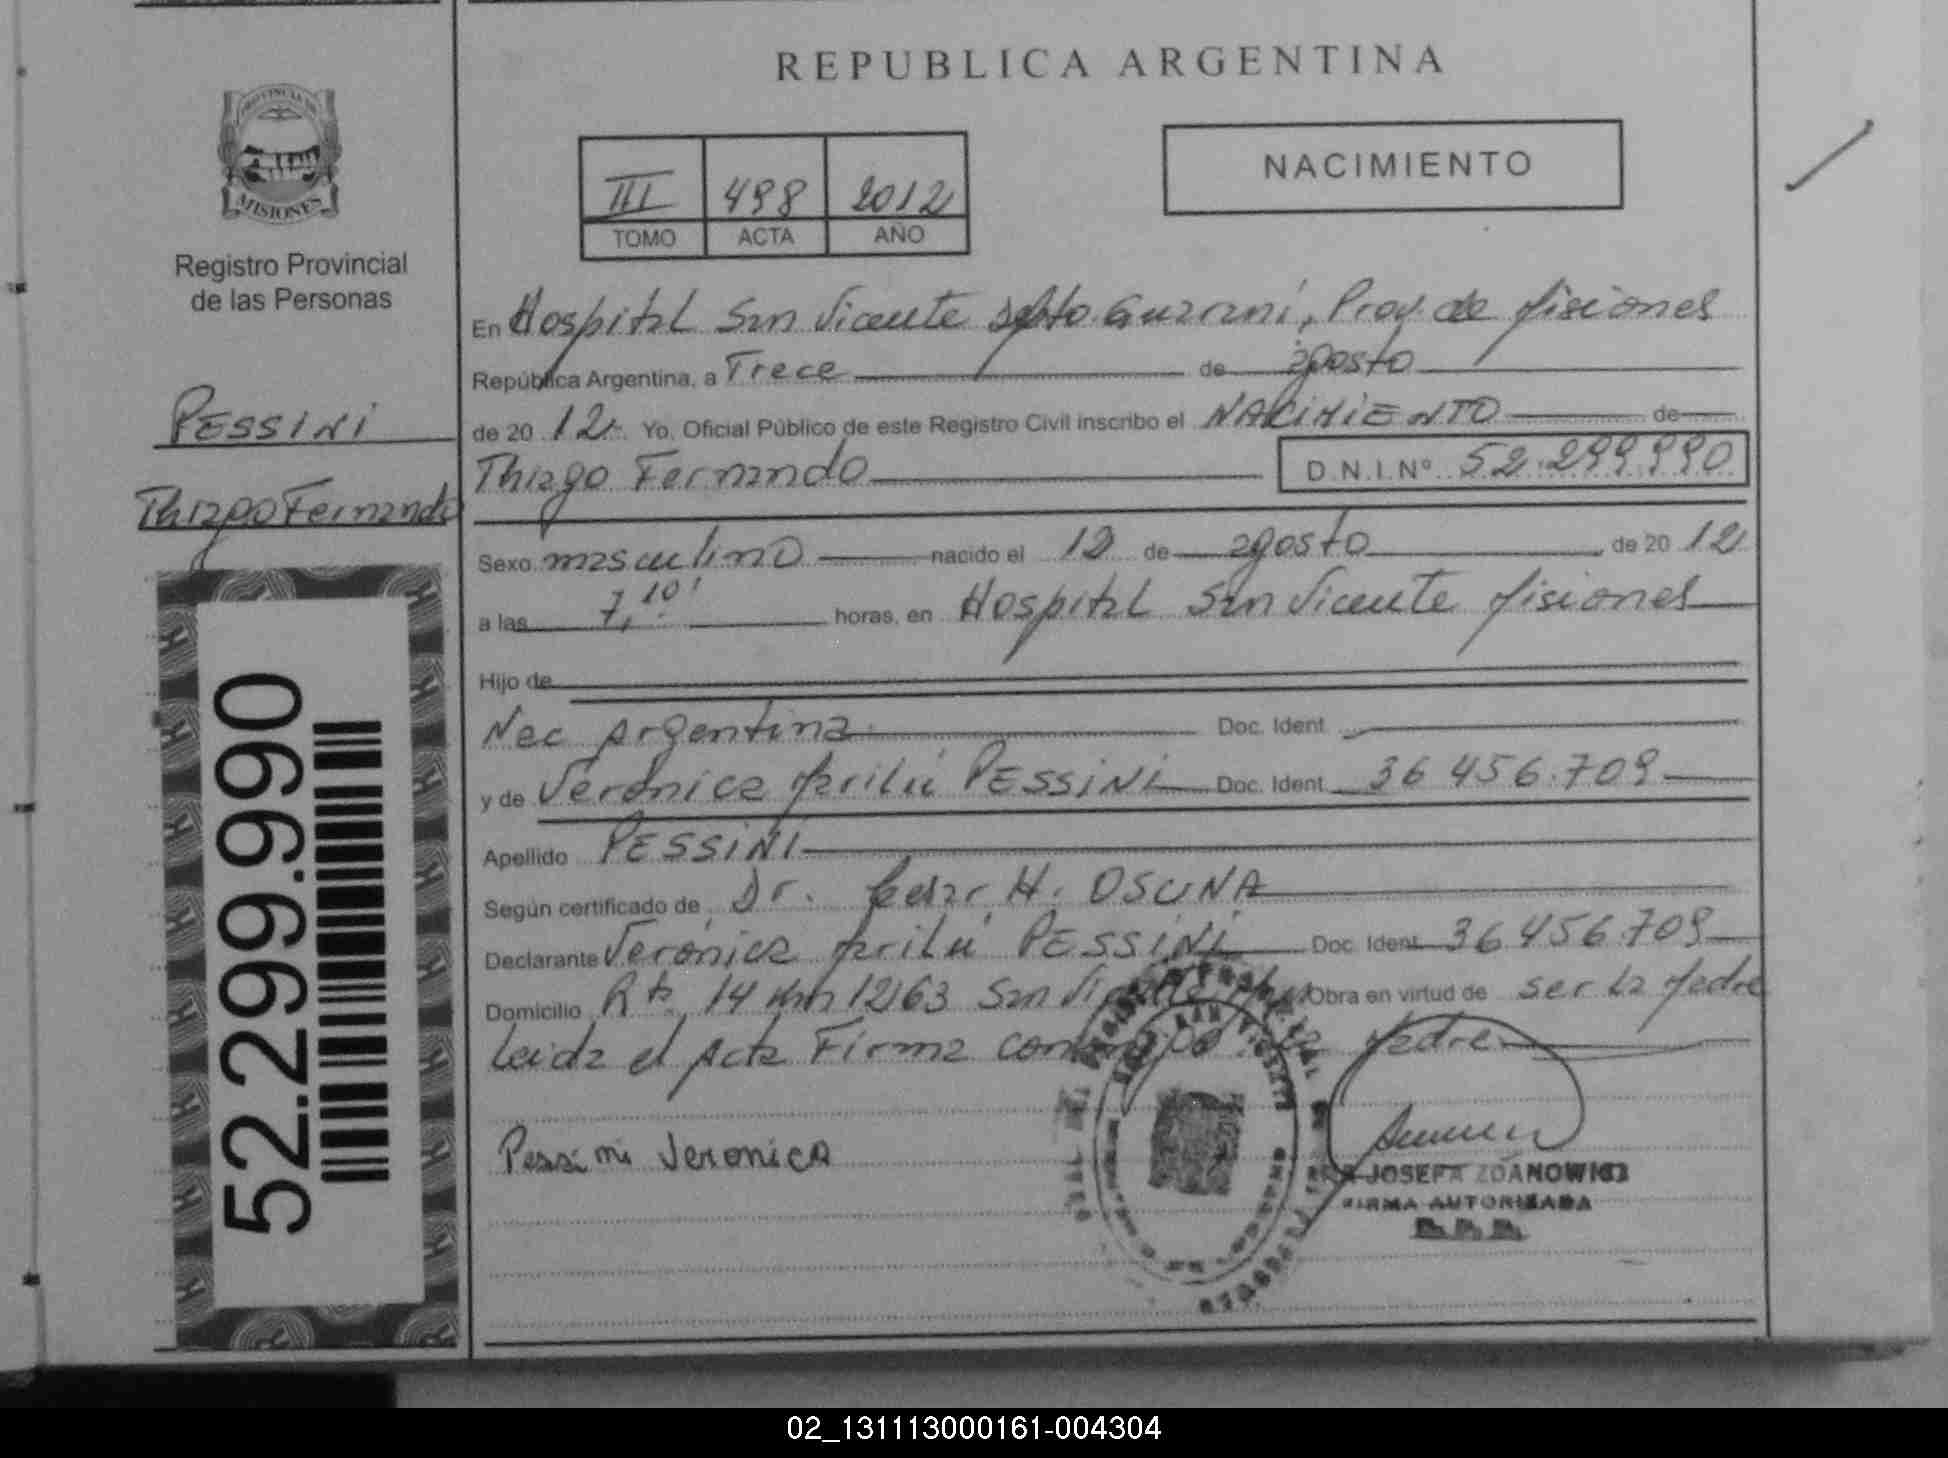 REPUBLICA ARGENTINA
PROVINCIA DE
MISIONES
Registro Provincial
de las Personas
PESSINI
Thiago Fernando
52.299.990
III 498 2012
TOMO ACTA AÑO
NACIMIENTO
En Hospital San Vicente Dpto. Guaraní, Prov. de Misiones
República Argentina, a Trece de agosto
de 20 12. Yo, Oficial Público de este Registro Civil inscribo el NACIMIENTO de
Thiago Fernando D.N.I.Nº 52.299.990
Sexo masculino nacido el 12 de agosto de 20 12
a las 7,10' horas, en Hospital San Vicente Misiones
Hijo de
Nac Argentina Doc. Ident.
y de Verónica Marilú PESSINI Doc. Ident. 36 456.709
Apellido PESSINI
Según certificado de Dr. Cesar H. OSUNA
Declarante Verónica Marilú PESSINI Doc. Ident. 36 456.709
Domicilio Rta. 14 km 1263 San Vicente Obra en virtud de ser la Madre
Leida el Acta Firma conmigo la Madre
Pessini Veronica
JOSEFA ZDANOWICZ
FIRMA AUTORIZADA
02_131113000161-004304